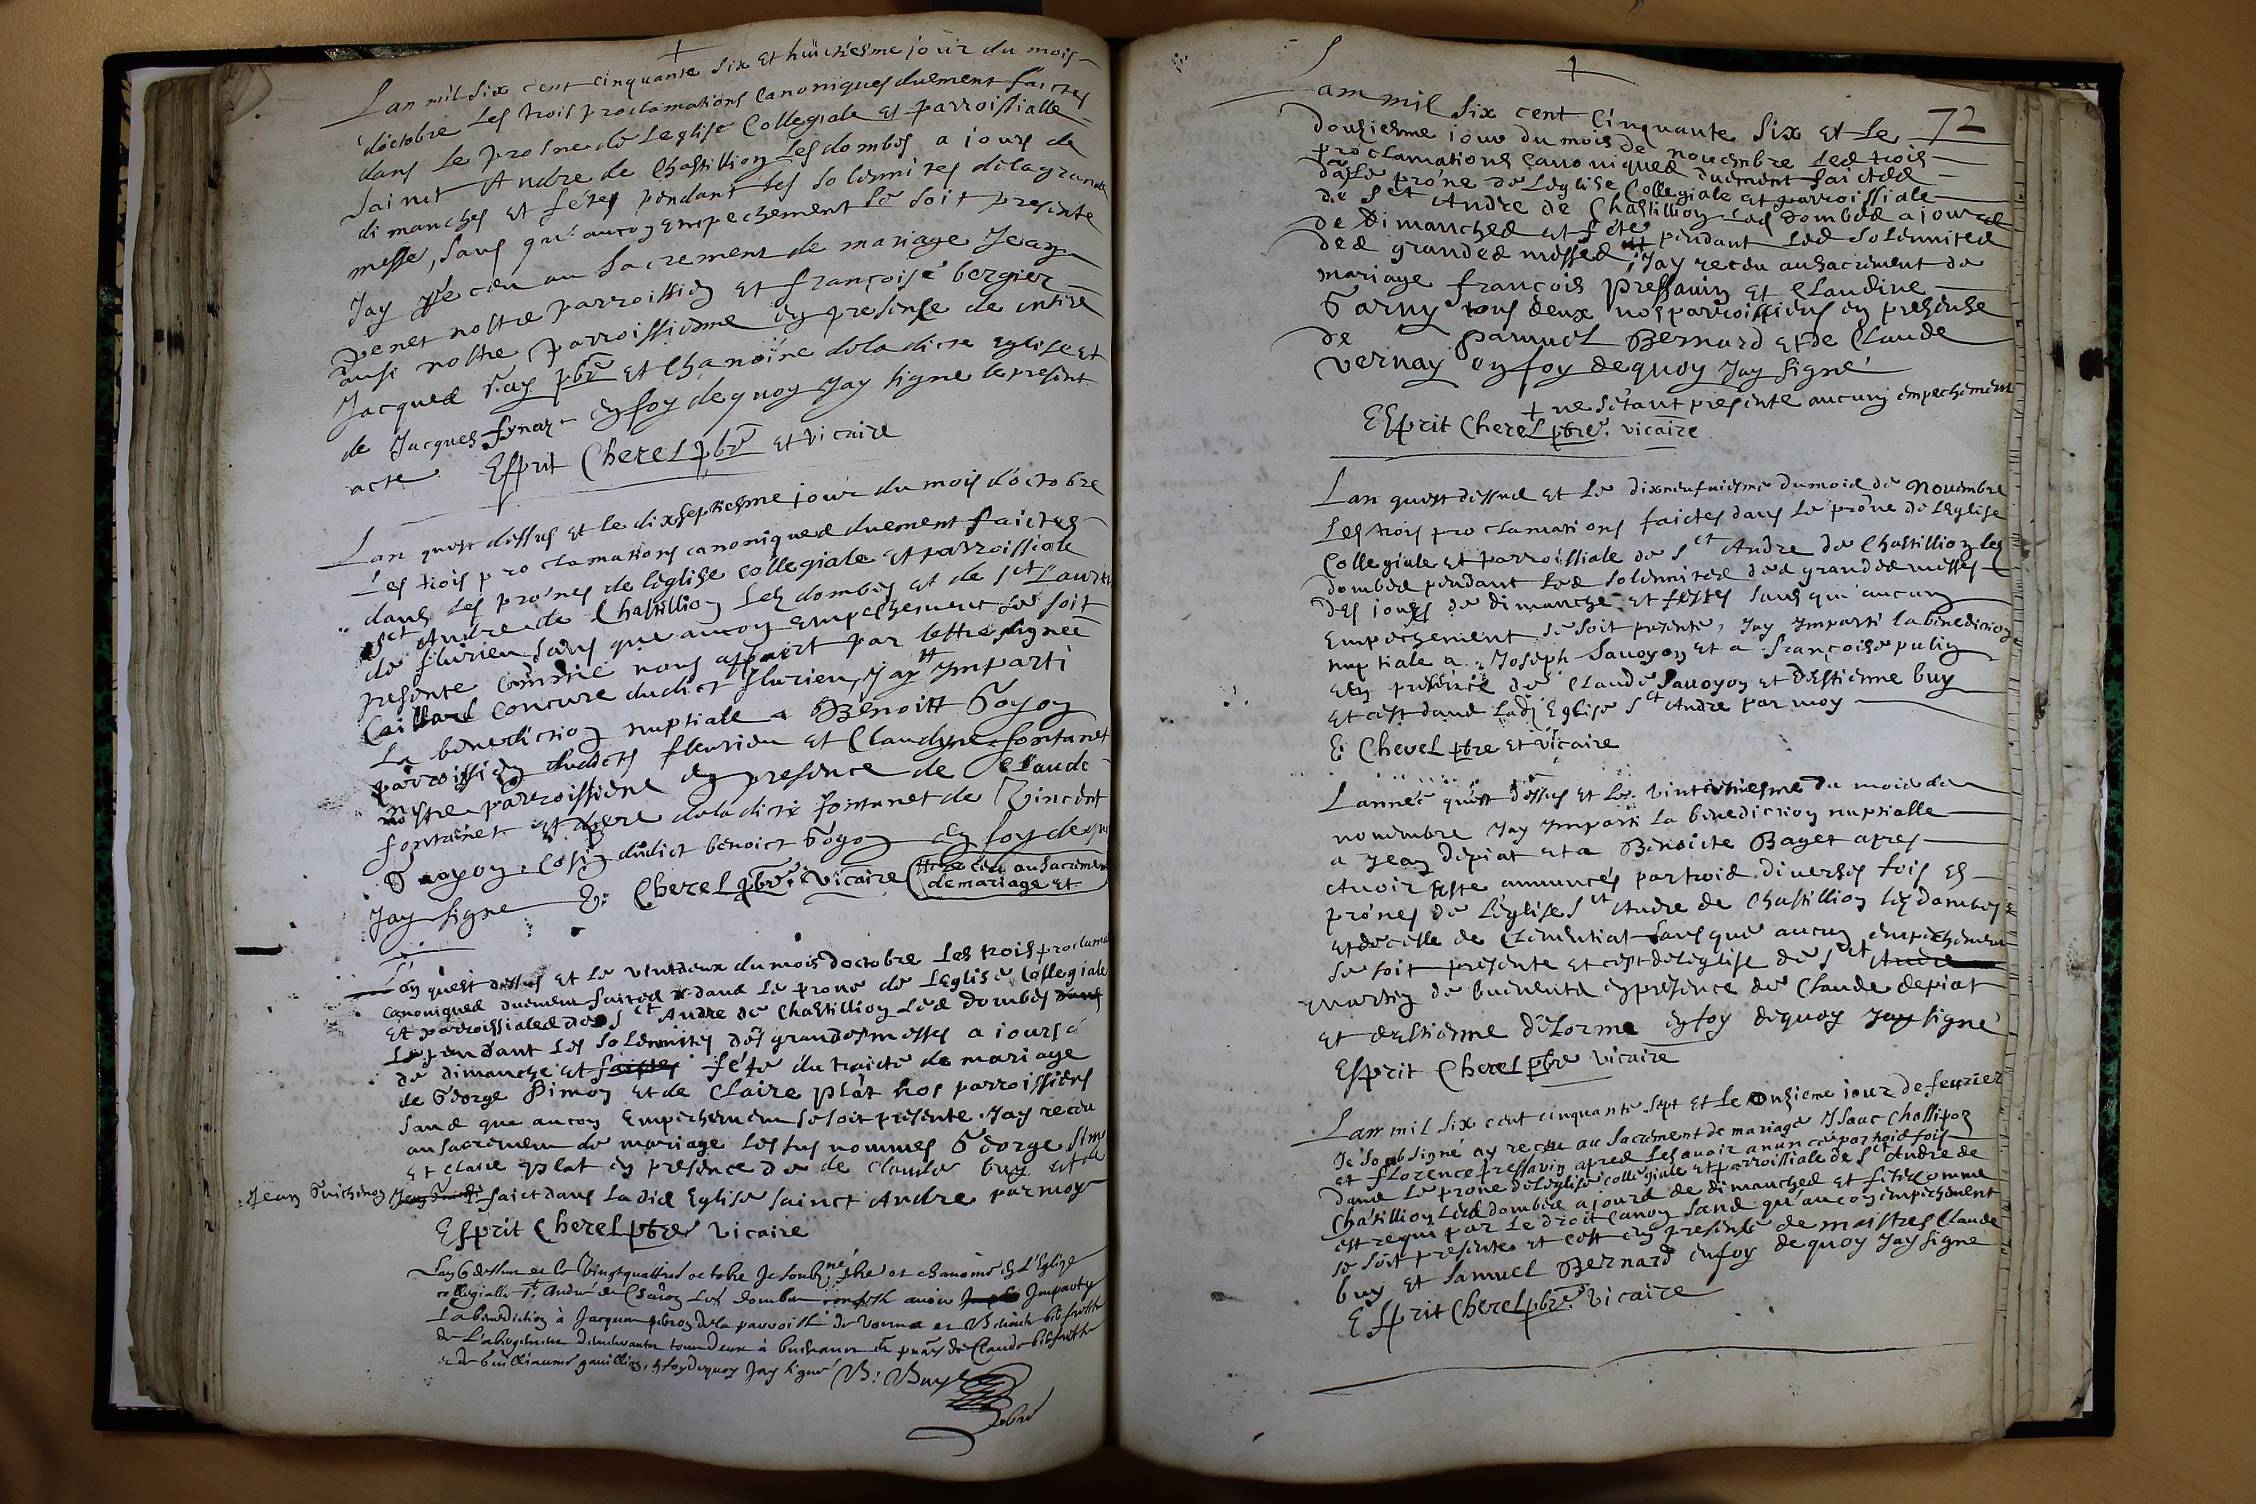 +
Lan mil six cent cinquante six et huictiesme jour du mois
doctobre les trois proclamations canoniques duement faictes
dans le prosne de leglise Collegiale et parroissialle
sainct Andre de Chastillion les dombes a jours de
dimanches et fétes pendant les solemnites de la grande
messe, sans qu'aucun empechement se soit presente
Jay receu au sacrement de mariage Jean
penet nostre parroissien et françoise bergier
aussi nostre parroissiene en presense de mire
Jacques pbre et Chanoine de la dicte Eglise et
de Jacques en foy de quoy Jay signe le present
acte Esprit Cherel pbre et vicaire
Lan quest dessus et le dixseptiesme jour du mois doctobre
les trois proclamations canoniques duement faictes
dans les prosnes de leglise collegiale et parroissiale
sct Andre de Chastillion les dombes et de sct Laurens
de flurieu sans que aucun empeschement se soit
presente comme nous appairt par lettre signée
concure dudict flurieu, Jay Imparti
la benediction nuptiale a Benoitt Goyon
parroissien dudict flurieu et Claudyne fontanet
nostre parroissiene en presence de Claude
fontanet et pere de la dicte fontanet de Vincent
Goyon, Cosin dudict benoict Goyon en foy de quoy
Jay signe E: Cherel pbre, vicaire (receu au sacrement
de mariage et
Lan quest dessus et le vintdeux du mois doctobre les trois proclama
canoniques duement faites dans le prone de Leglise Collegiale
et parroissiale de sct Andre de Chastillion les dombes dans
pendant les solemnites des grandes messes a jours
de dimanche et faictes féte du traicté de mariage
de George Simon et de Claire plat nos parroissiens
sans que aucun Empechement se soit presente. Jay receu
au sacrement de mariage les sus nommes George Simo
et Claire plat en presence de de Claude buy et de
Jean Guichenon faict dans la dicte Eglise sainct Andre par moy
Esprit Cherel pbre vicaire
Lan dessus et le vingtquattres octobre Je soubsné pbre et chanoine en l'Eglise
collegialle st André de les dombes Imparty
La benediction à Jacques de la parroisse de Vonna et Benoite
demeurantes tous deux à de Claude
et de Guilliaume en foy dequoy Jay signé B: Buy
pbre
+
72
Lan mil six cent Cinquante six et le
douziesme jour du mois de nouembre les trois
proclamations canoniques duement faictes
das le próne de Leglise Collegiale et parroissiale
de sct Andre de Chastillion les dombes a jour
de dimanches et féte pendant les solemnites
des grandes messes, + Jay receu au sacrement de
mariage françois pressavin et Claudine
Garny tous deux nos parroissiens en presense
de samuel Bernard et de Claude
vernay en foy dequoy Jay signé
+ ne sétant presente aucung empechement
Esprit Cherel pbre. vicaire
Lan quest dessus et le dixneufuiesme du mois de nouembre
Les trois proclamations faictes dans le próne de Leglise
Collegiale et parroissiale de sct Andre de Chastillion les
dombes pendant les solemnites des grandes messes
des jours de dimanche et festes sans qu'aucun
Empechement se soit presente, Jay Imparti la benediction
nuptiale a Joseph Savoyon et a françoise pulin
et en presence de Claude Savoyon et dEstienne buy
et cest dans ladi Eglise sct Andre par moy
E: Cherel pbre et vicaire
Lannée quest dessus et le du mois de
nouembre Jay Imparti la benediction nuptialle
a Jean depiat et a Benoicte Baget apres
avoir este annuncés par trois diverses fois es
prónes de Léglise sct Andre de Chastillion les dombes
et de celle de Clementiat sans que aucun empechement
se soit presente et cest de leglise de sct Andre
martin de buenents en presence de Claude depiat
et dEstienne deLorme en foy dequoy Jay signé
Esprit Cherel pbre vicaire
Lan mil six cent cinquante sept et le onzieme iour de feurier
Je soubsigné ay receu au sacrement de mariage Isaac Chossipon
et florence pressavin apres les avoir annunce par trois fois
dans le prone de leglise collegiale et parroissiale de sct Andre de
Chastillion les dombes a jours de dimanches et fetes comme
est requi par le droit canon sans qu'aucun empechement
se soit presente et cest en presense de maistres Claude
buy et Samuel Bernard en foy dequoy Jay signe
Esprit Cherel pbre. vicaire